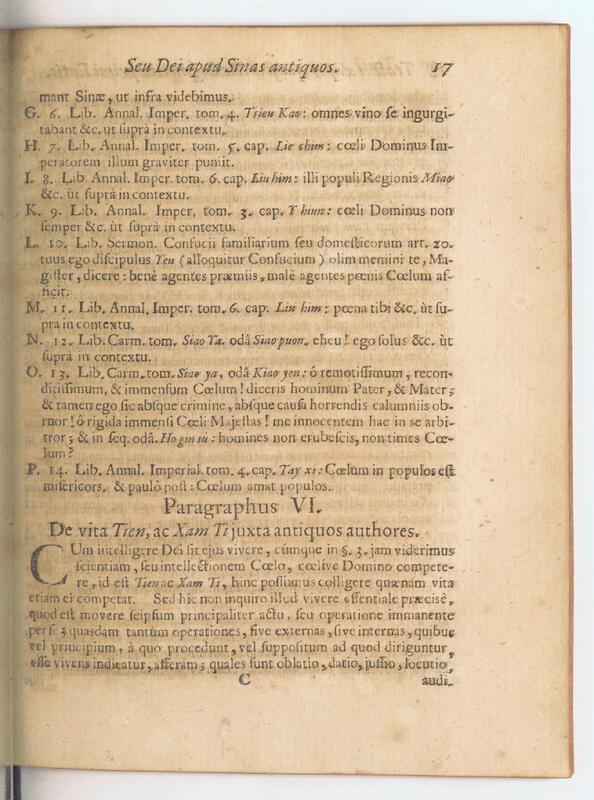 Seu Dei apud Sinas antiquos. 17
mant Sinæ, ut infra videbimus.
G. 6. Lib. Annal. Imper. tom. 4. Tsieu Kao: omnes vino se ingurgi-
tabant &c. ut suprà in contextu.
H 7. Lib. Annal. Imper. tom. 5. cap. Lie chim: cœli Dominus Im-
peratorem illum graviter puniit.
I. 8. Lib. Annal. Imper. tom. 6. cap. Liu him: illi populi Regionis Miao
&c. ùt suprà in contextu.
K. 9. Lib. Annal. Imper. tom. 3. cap. Y hiun: cœli Dominus non
semper &c. ùt suprà in contextu.
L. 10. Lib. Sermon. Confucii familiarium seu domesticorum art. 20.
tuus ego discipulus Yeu (alloquitur Confucium) olim memini te, Ma-
gister, dicere: benè agentes præmiis, malè agentes pœnis Cœlum af-
ficit.
M. 11. Lib. Annal. Imper. tom. 6. cap. Liu him: pœna tibi &c. ùt su-
pra in contextu.
N. 12. Lib. Carm. tom. Siao Ya. odâ Siao puon. eheu! ego solus &c. ùt
suprà in contextu.
O. 13. Lib. Carm. tom. Siao ya, odâ Kiao yen: ô remotissimum, recon-
ditissimum, & immensum Cœlum! diceris hominum Pater, & Mater;
& tamen ego sic absque crimine, absque causa horrendis calumniis ob-
ruor! ô rigida immensi Cœli Majestas! me innocentem hac in se arbi-
tror; & in seq. odâ. Ho gin sù: homines non erubescis, non times Cœ-
lum?
P. 14. Lib. Annal. Imperial. tom. 4. cap. Tay xi: Cœlum in populos est
misericors. & paulò post: Cœlum amat populos.
Paragraphus VI.
De vita Tien, ac Xam Ti juxta antiquos authores.
CUm intelligere Dei sit ejus vivere, cùmque in §. 3. jam viderimus
scientiam, seu intellectionem Cœlo, cœlive Domino compete-
re, id est Tien ac Xam Ti, hinc possumus colligere quænam vita
etiam ei competat. Sed hic non inquiro illud vivere essentiale præcisè,
quod est movere seipsum principaliter actu, seu operatione immanente
per se; quasdam tantum operationes, sive externas, sive internas, quibus
vel principium, à quo procedunt, vel suppositum ad quod diriguntur,
esse vivens indicatur, afferam; quales sunt oblatio, datio, jussio, locutio,
C audi-